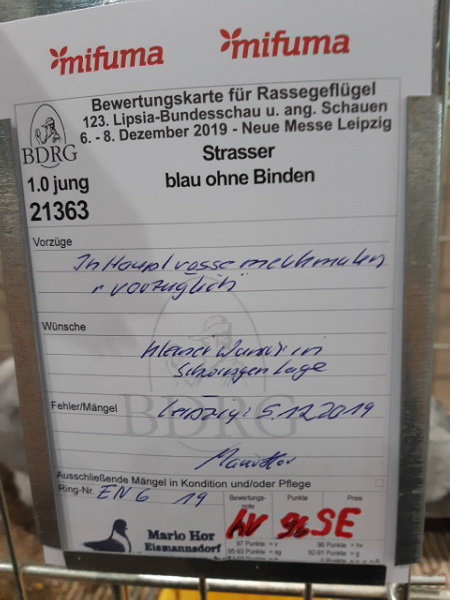 mifuma mifuma
Bewertungskarte für Rassegeflügel
123. Lipsia-Bundesschau u. ang. Schauen
6. - 8. Dezember 2019 - Neue Messe Leipzig
BDRG
Strasser
1.0 jung
blau ohne Binden
21363
Vorzüge
In Hauptrassemerkmalen
vorzüglich
Wünsche
kleiner Wunsch in
Schwingenlage
Fehler/Mängel
Leipzig: 5.12.2019
BDRG
Ausschließende Mängel in Kondition und/oder Pflege
Ring-Nr. EN 6 19
Bewertungs-note Punkte Preis
hv 96 SE
Mario Hor
Eismannsdorf
97 Punkte = v 96 Punkte = hv
95-93 Punkte = sg 92-91 Punkte = g